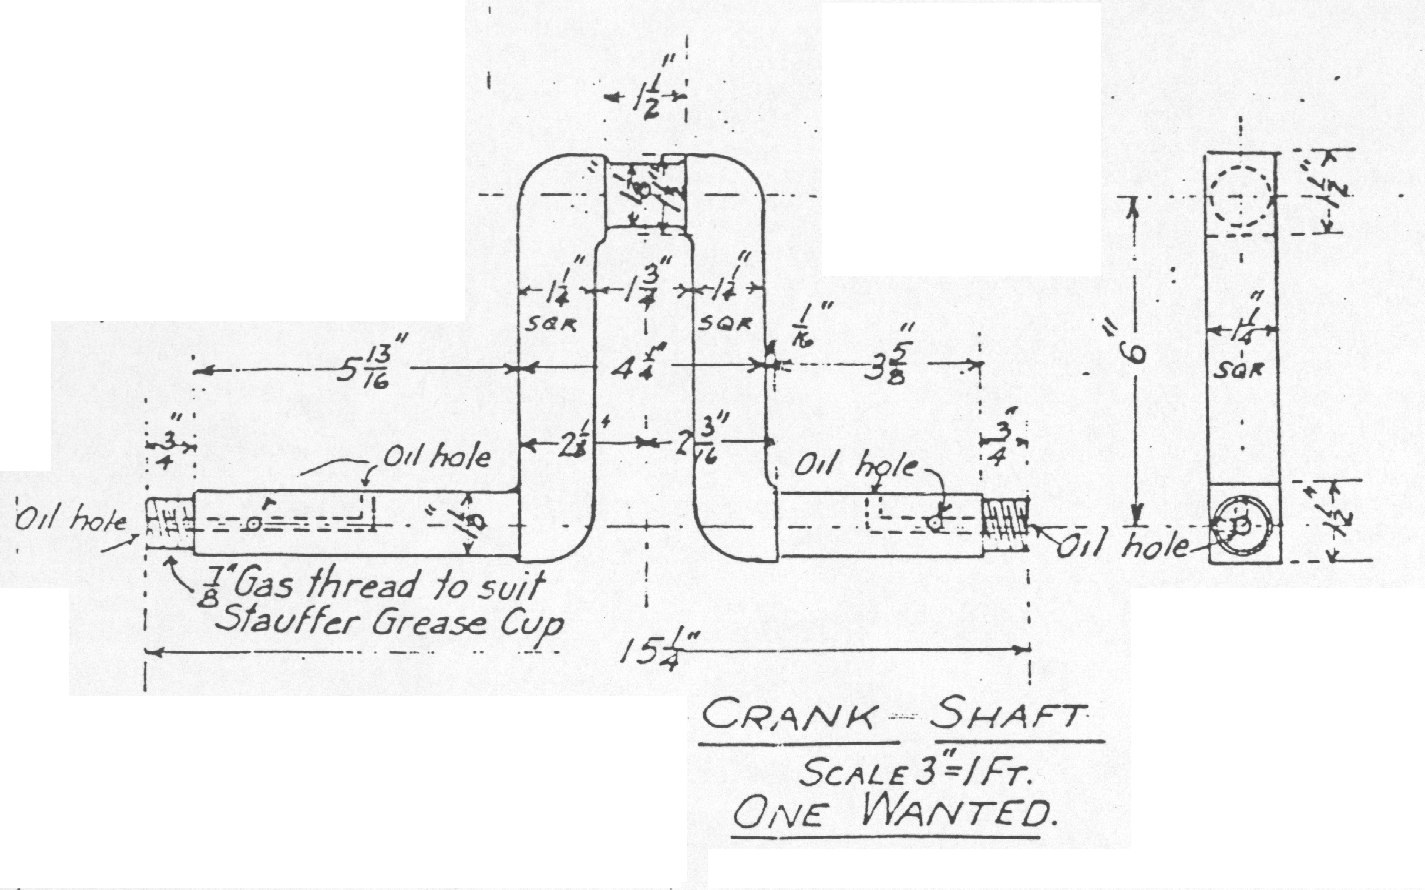 1 1/2"
1 1/4" SQR
1 3/4"
1 1/4" SQR
1/16"
5 13/16"
4 1/4"
3 5/8"
6"
1 1/2"
1 1/4"
SQR
3/4"
2 1/8"
2 3/16"
3/4"
Oil hole
Oil hole
Oil hole
Oil hole
1 1/2"
7/8" Gas thread to suit
Stauffer Grease Cup
15 1/4"
CRANK - SHAFT
SCALE 3"=1 FT.
ONE WANTED.